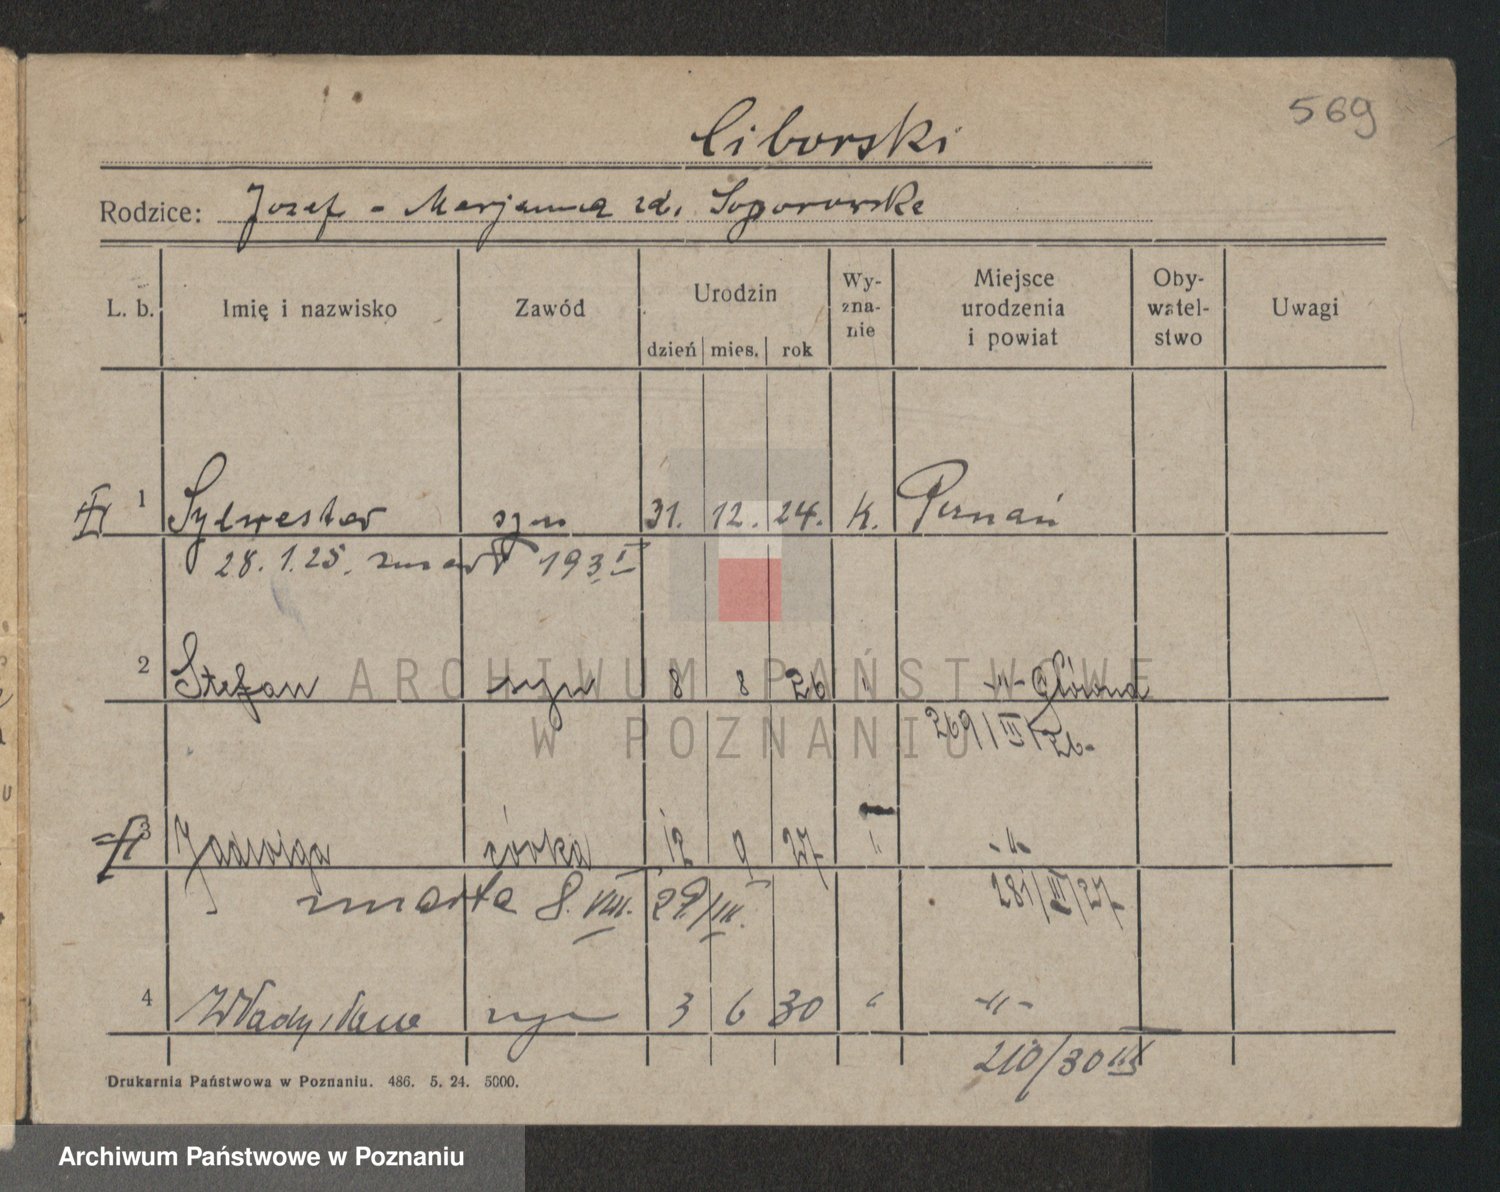 569
Ciborski
Rodzice: Jozef - Marjanna zd. Soporowska
L. b. Imię i nazwisko Zawód Urodzin Wy-zna-nie Miejsce urodzenia i powiat Oby-watel-stwo Uwagi
dzień mies. rok
1 Sylwester syn 31. 12. 24. k. Poznań
28. 1. 25. zmarł 193 I
2 Stefan syn 8 8 26 " -"- Główna
269/III/26.
3 Jadwiga córka 12 9 27 " -"-
zmarła 8. VIII. 29/III. 281/III/27
4 Władysław syn 3 6 30 " -"-
210/30 III
Drukarnia Państwowa w Poznaniu. 486. 5. 24. 5000.
ARCHIWUM PAŃSTWOWE
W POZNANIU
Archiwum Państwowe w Poznaniu